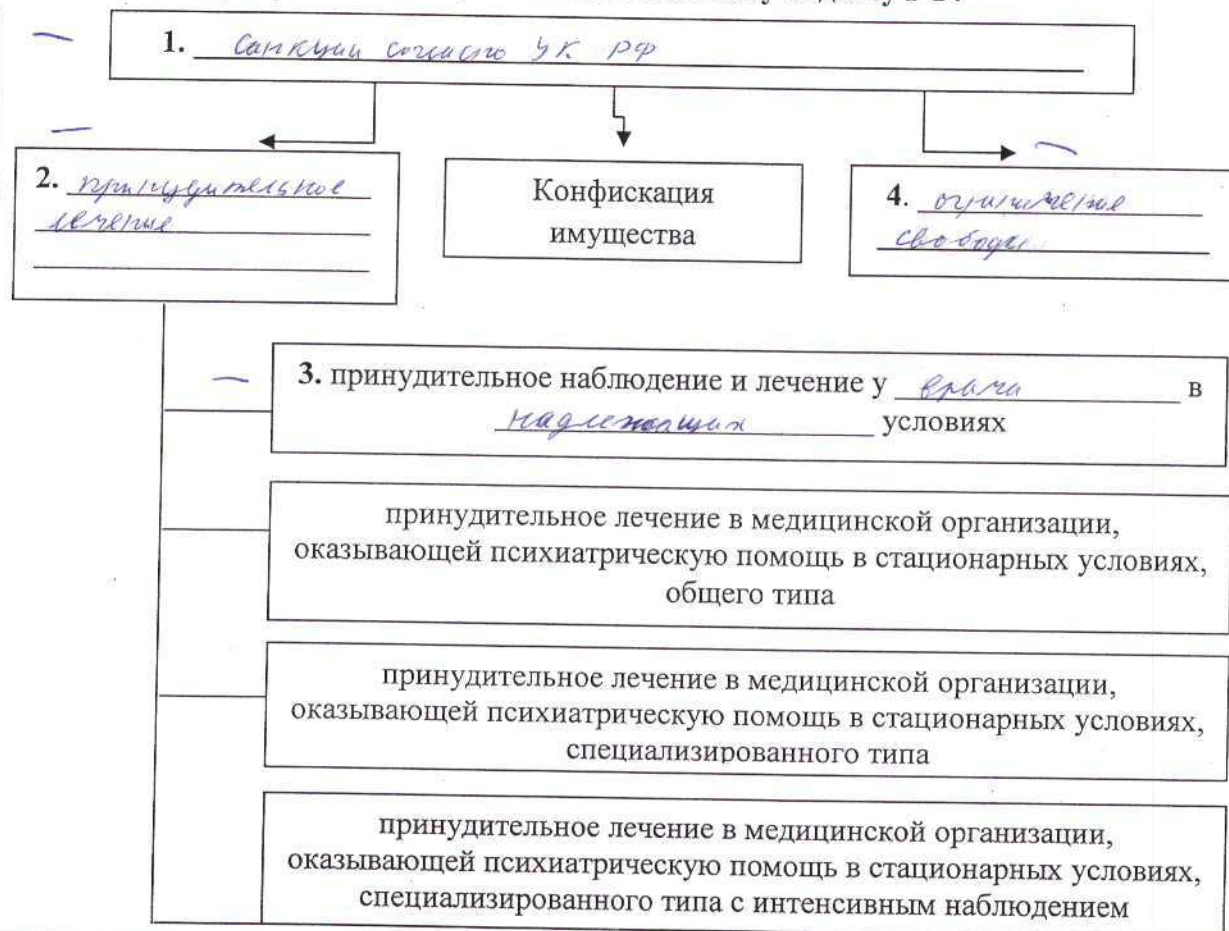 1. Санкции согласно УК РФ
2. принудительное
лечение
Конфискация
имущества
4. ограничение
свободы
3. принудительное наблюдение и лечение у врача в
надлежащих условиях
принудительное лечение в медицинской организации,
оказывающей психиатрическую помощь в стационарных условиях,
общего типа
принудительное лечение в медицинской организации,
оказывающей психиатрическую помощь в стационарных условиях,
специализированного типа
принудительное лечение в медицинской организации,
оказывающей психиатрическую помощь в стационарных условиях,
специализированного типа с интенсивным наблюдением